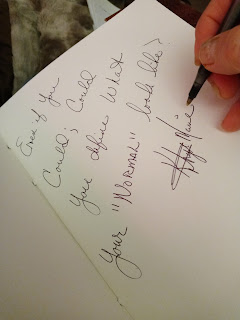 Even if you
Could; Could
you define What
your "NORMAL" looks like?